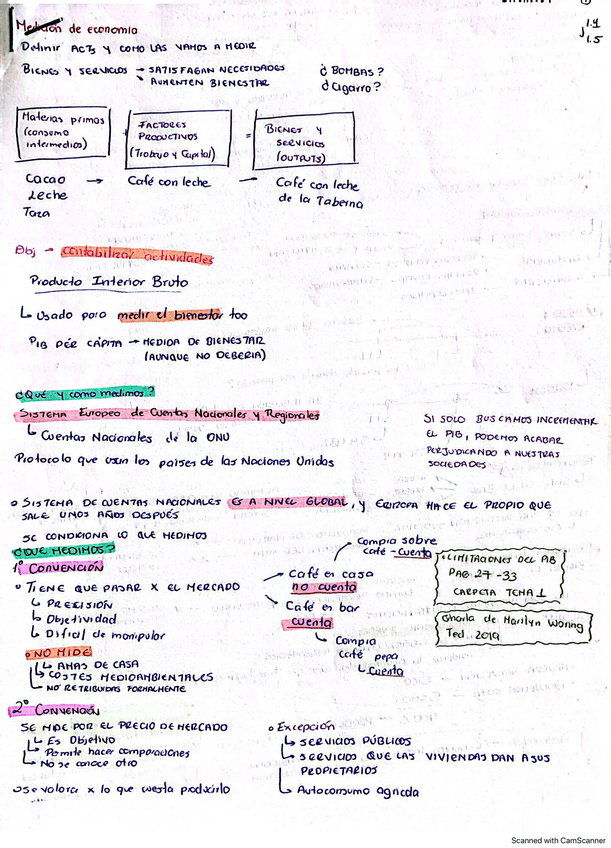 Medición de economía
1.4
1.5
Definir ACTS y COMO LAS VAMOS A MEDIR
BIENES Y SERVICIOS → SATISFAGAN NECESIDADES
→ AUMENTEN BIENESTAR
¿ BOMBAS?
¿ Cigarro?
Materias primas
(consumo
intermedios)
+
FACTORES
PRODUCTIVOS
(Trabajo y Capital)
=
BIENES Y
SERVICIOS
(OUTPUTS)
Cacao → Café con leche → Café con leche
Leche
de la Taberna
Taza
Obj → contabilizar actividades
Producto Interior Bruto
↳ Usado para medir el bienestar too
PIB PER CÁPITA → MEDIDA DE BIENESTAR
(AUNQUE NO DEBERIA)
¿Qué y como medimos?
SISTEMA Europeo de Cuentas Nacionales y Regionales
↳ Cuentas Nacionales de la ONU
Protocolo que usan los países de las Naciones Unidas
SI SOLO BUSCAMOS INCREMENTAR
EL PIB, PODEMOS ACABAR
PERJUDICANDO A NUESTRAS
SOCIEDADES
o SISTEMA DE CUENTAS NACIONALES ES A NIVEL GLOBAL, y EUROPA HACE EL PROPIO QUE
SALE UNOS AÑOS DESPUÉS
SE CONDICIONA LO QUE MEDIMOS
¿QUE MEDIMOS?
1º CONVENCIÓN
o TIENE QUE PASAR X EL MERCADO
↳ PRECISIÓN
↳ Objetividad
↳ Dificil de manipular
o NO MIDE
↳ AMAS DE CASA
↳ COSTES MEDIOAMBIENTALES
↳ NO RETRIBUIDAS FORMALMENTE
Compra sobre
café - Cuenta
Café en casa
no cuenta
Café en bar
cuenta
↳ Compra
café pepa
↳ Cuenta
LIMITACIONES DEL PIB
PAG 27 - 33
CARPETA TEMA 1
Charla de Marilyn Waring
Ted 2019
2º CONVENCIÓN
SE MIDE POR EL PRECIO DE MERCADO
↳ Es Objetivo
↳ Permite hacer comparaciones
↳ No se conoce otro
o Se valora x lo que cuesta producirlo
o Excepción
↳ SERVICIOS PÚBLICOS
↳ SERVICIOS QUE LAS VIVIENDAS DAN A SUS
PROPIETARIOS
↳ Autoconsumo agrícola
Scanned with CamScanner